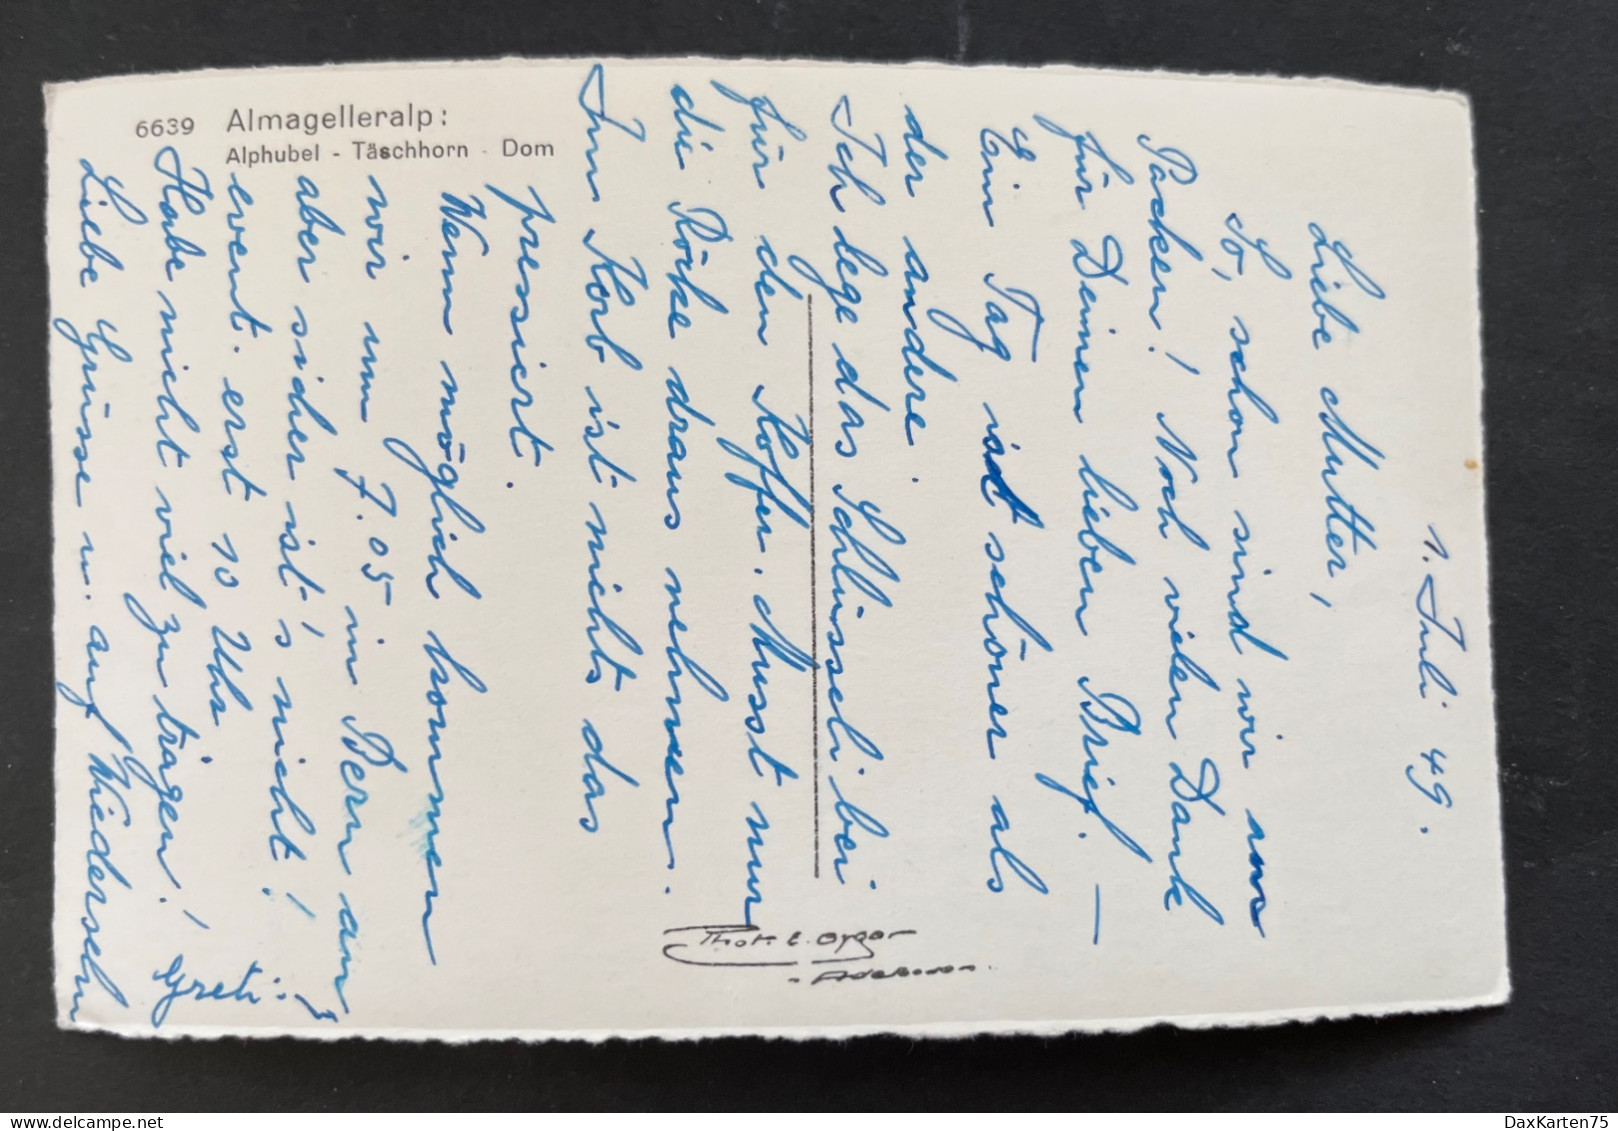 6639 Almagelleralp:
Alphubel - Täschhorn - Dom
1. Juli 49.
Liebe Mutter,
So, schon sind wir am
Packen! Noch vielen Dank
für Deinen lieben Brief. —
Ein Tag ist schöner als
der andere.
Ich lege das Schlüsseli bei
für den Koffer. Musst nur
die Röcke draus nehmen.
Im Korb ist nichts das
pressiert.
Wenn möglich kommen
wir um 7.05 in Bern an
aber sicher ist's nicht!
event. erst 10 Uhr
Habe nicht viel zu tragen!
Liebe Grüsse u. auf Wiedersehn
Greti
Phot.
DaxKarten75